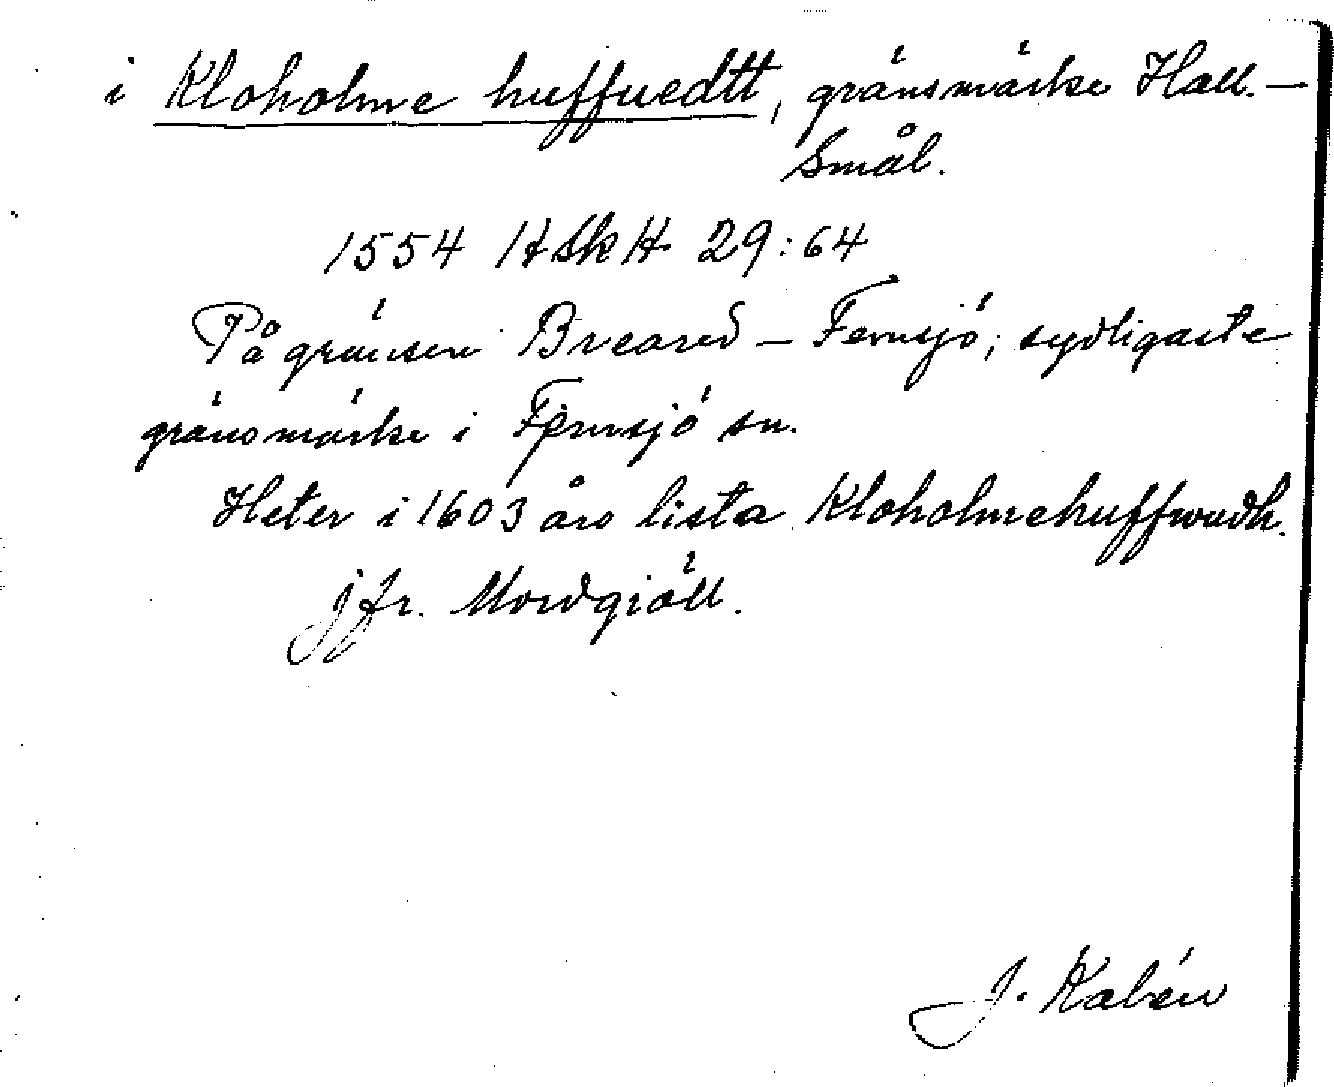 i Kloholme huffuedtt, gränsmärke Hall.–
Smål.
1554 HSkH 29:64
På gränsen Breared – Femsjö; sydligaste
gränsmärke i Femsjö sn.
Heter i 1603 års lista Kloholmehuffwudh.
jfr. Mordgiöll.
J. Kalén